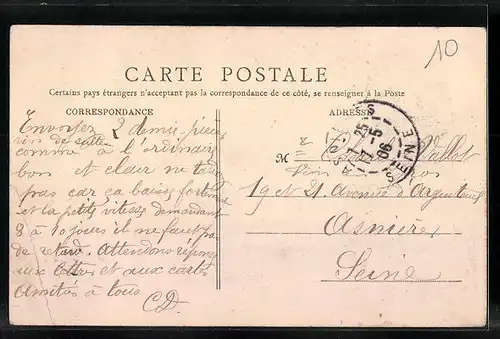 10
CARTE POSTALE
Certains pays étrangers n'acceptant pas la correspondance de ce côté, se renseigner à la Poste
CORRESPONDANCE
Envoyez 2 demie pieces
vin de
comme à l'ordinaire
bon et clair ne
pas car ça baisse fortement
et la petite vitesse demandant
8 à 10 jours il ne faut pas
de retard. Attendons réponse
aux lettres et aux cartes
Amitiés à tous
CD.
ADRESSE
M Vallot
Vin
19 et 21 Avenue d'Argenteuil
Asnières
Seine
25
21-5
06
SEINE